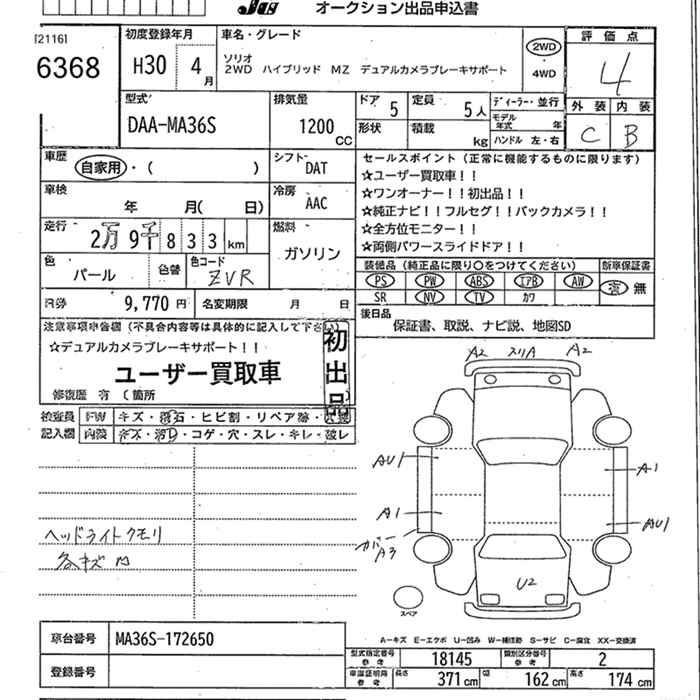 オークション出品申込書
[2116]
6368
初度登録年月
H30 4 月
車名・グレード
ソリオ
2WD ハイブリッド MZ デュアルカメラブレーキサポート
2WD
4WD
評価点
4
型式
DAA-MA36S
排気量
1200 CC
ドア 5
定員 5人
ディーラー・並行
モデル年式 年
形状
積載 kg
ハンドル 左・右
外装 内装
C B
車歴
自家用・( )
シフト
DAT
セールスポイント(正常に機能するものに限ります)
☆ユーザー買取車!!
☆ワンオーナー!!初出品!!
☆純正ナビ!!フルセグ!!バックカメラ!!
☆全方位モニター!!
☆両側パワースライドドア!!
車検
年 月( 日)
冷房
AAC
走行
2万 9千 8 3 3 km
燃料
ガソリン
色
パール
色替
色コード
ZVR
装備品(純正品に限り○をつけてください)
新車保証書
PS PW ABS エアB AW
有 無
SR NV TV カワ
R券 9,770 円
名変期限 月 日
後日品
保証書、取説、ナビ説、地図SD
注意事項申告欄(不具合内容等は具体的に記入して下さい)
☆デュアルカメラブレーキサポート!!
ユーザー買取車
初出品
修復歴 有 (箇所
検査員 FW キズ・飛石・ヒビ割・リペア跡・
記入欄 内装 キズ・汚れ・コゲ・穴・スレ・キレ・破レ
A2 スリA A2
AU1
A1
A1
AU1
カバーA3
U2
スペア
ヘッドライトクモリ
各キズ 凹
A-キズ E-エクボ U-凹み W-補修跡 S-サビ C-腐食 XX-交換済
車台番号 MA36S-172650
型式指定番号 参考 18145
類別区分番号 参考 2
登録番号
車庫証明用 参考
長さ 371 cm 幅 162 cm 高さ 174 cm